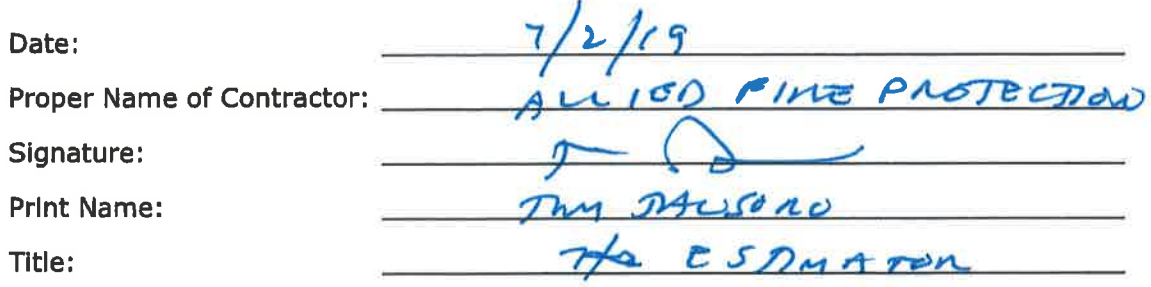 Date: 7/2/19
Proper Name of Contractor: ALLIED FIRE PROTECTION
Signature:
Print Name: Tim
Title: ESTIMATOR